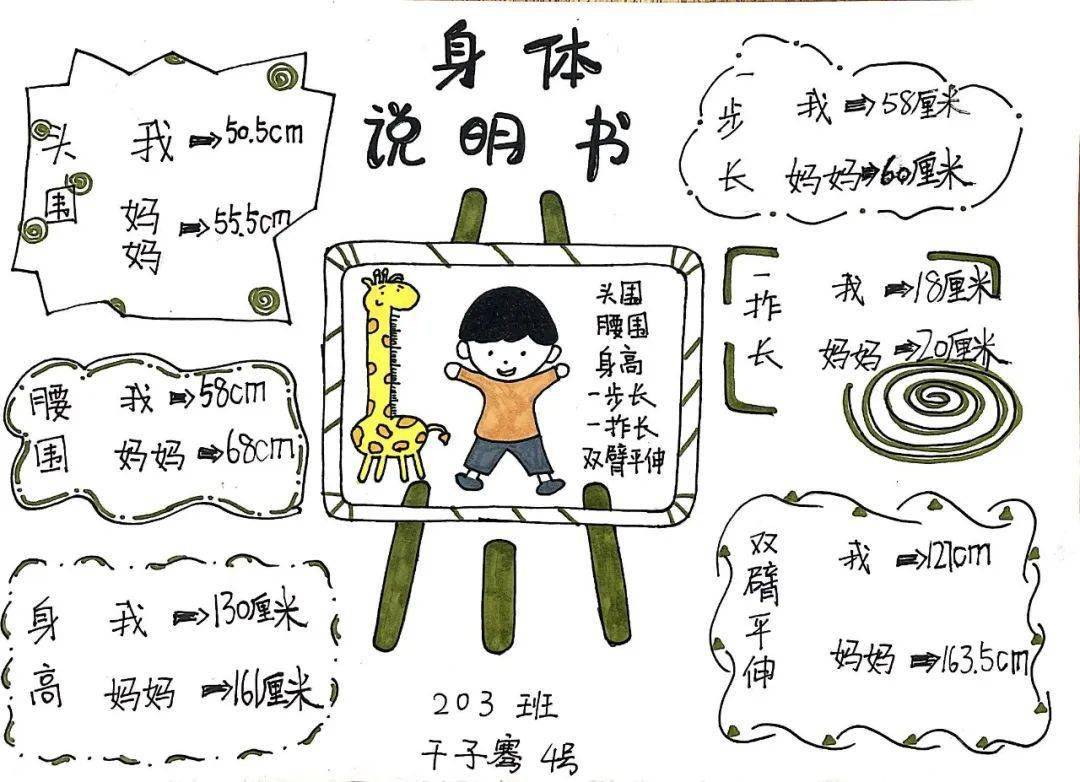 身体
说明书
头围
我⇒50.5cm
妈妈⇒55.5cm
腰围
我⇒58cm
妈妈⇒68cm
身高
我⇒130厘米
妈妈⇒161厘米
头围
腰围
身高
一步长
一拃长
双臂平伸
步长
我⇒58厘米
妈妈⇒60厘米
一拃长
我⇒18厘米
妈妈⇒20厘米
双臂平伸
我⇒121cm
妈妈⇒163.5cm
203班
干子骞 4号